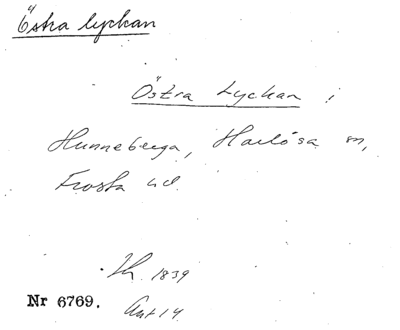 Östra lyckan
Östra Lyckan i
Hunneberga, Harlösa sn,
Frosta hd.
Sk. 1839
Nr 6769.
Akt 14